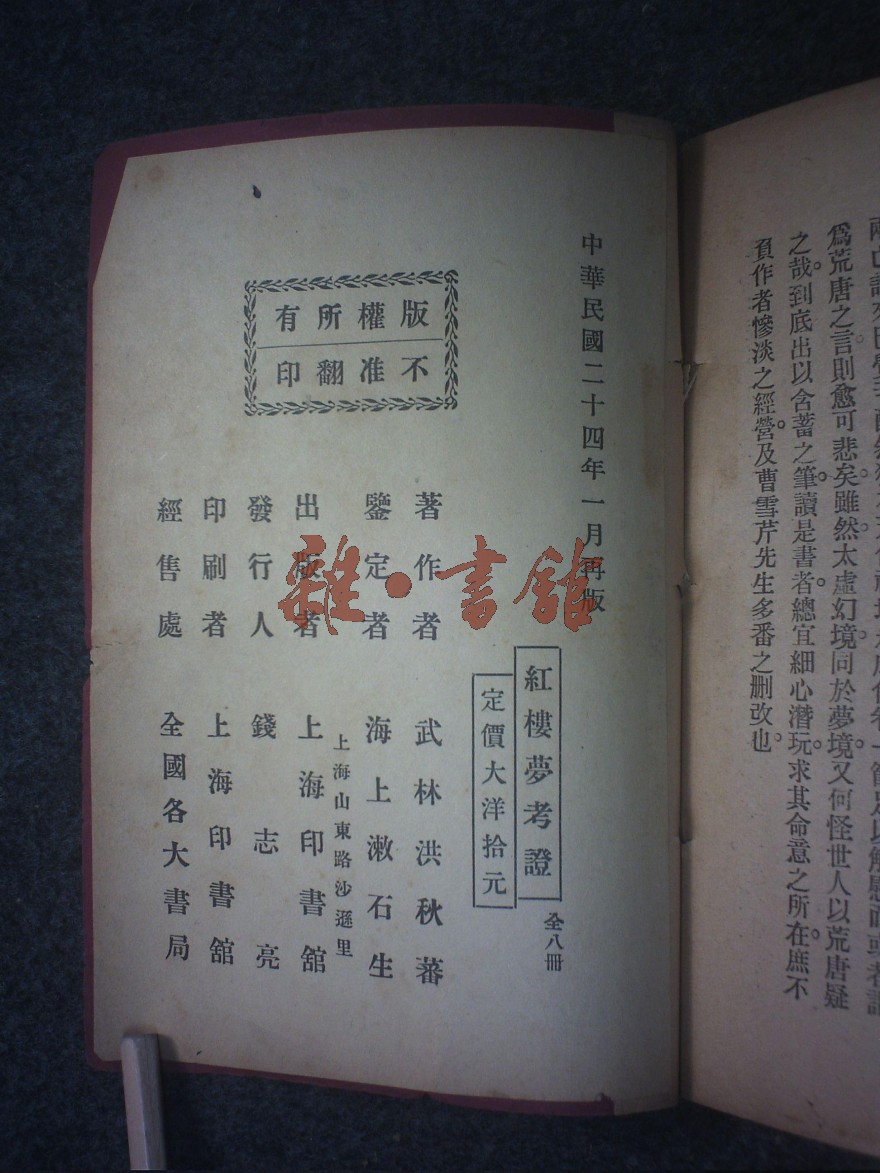 兩
爲荒唐之言則愈可悲矣。雖然太虛幻境同於夢境。又何怪世人以荒唐疑
之哉。到底出以含蓄之筆。讀是書者。總宜細心潛玩。求其命意之所在。庶不
負作者慘淡之經營。及曹雪芹先生多番之刪改也。
中華民國二十四年一月再版
紅樓夢考證
全八冊
定價大洋拾元
版權所有
不准翻印
著作者 武林洪秋蕃
鑒定者 海上漱石生
上海山東路沙遜里
出版者 上海印書館
發行人 錢志亮
印刷者 上海印書館
經售處 全國各大書局
雜·書館